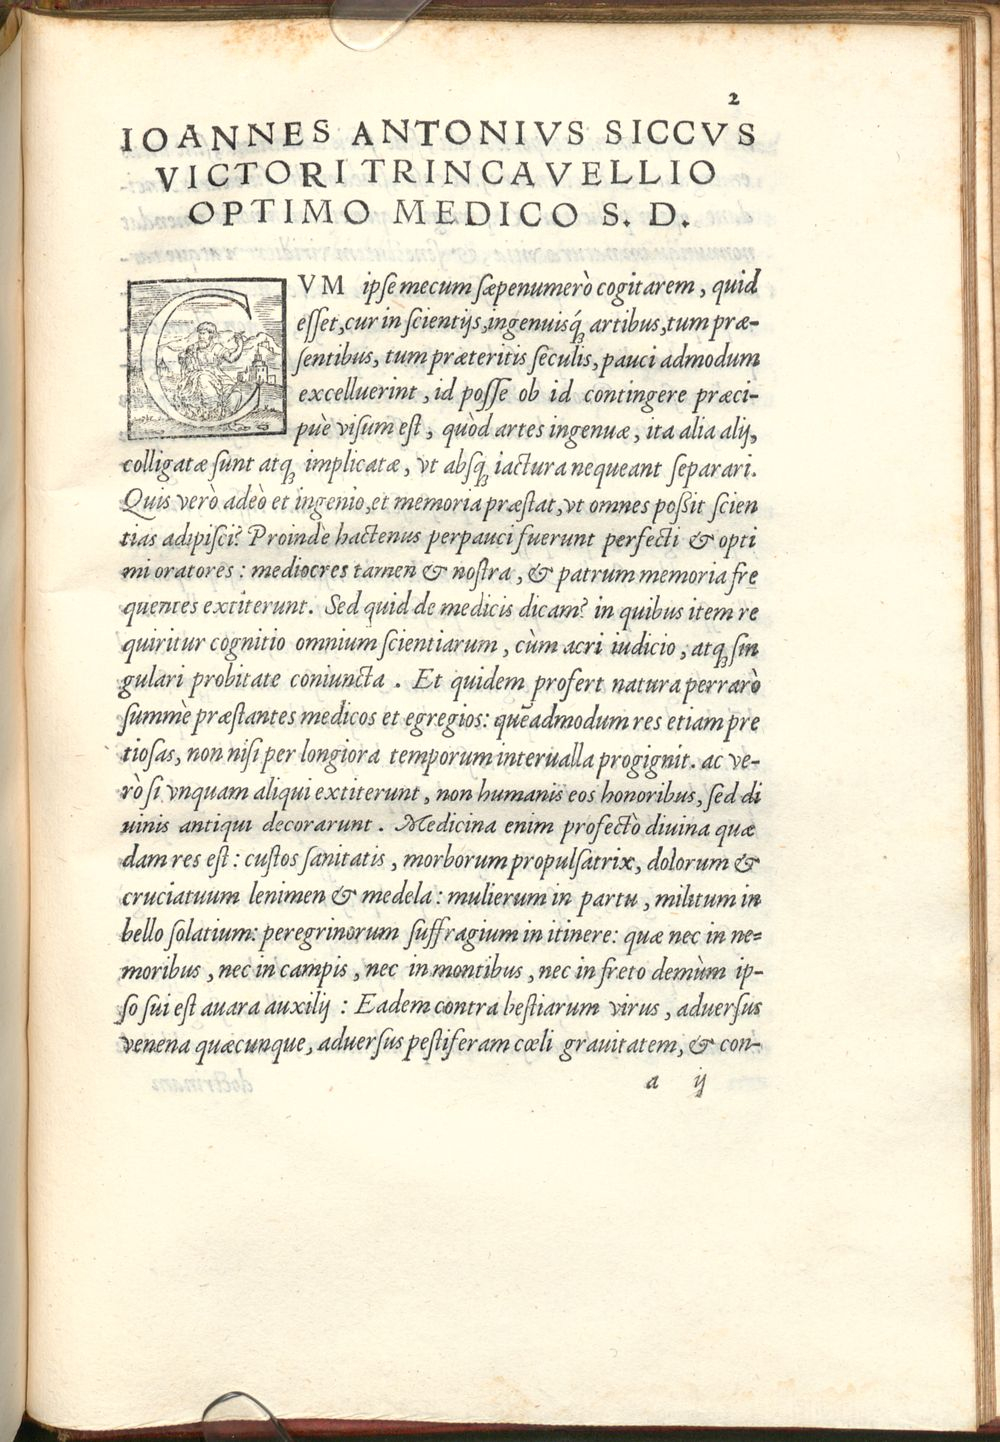 2
IOANNES ANTONIVS SICCVS
VICTORI TRINCAVELLIO
OPTIMO MEDICO S. D.
CVM ipse mecum sæpenumerò cogitarem, quid
esset, cur in scientijs, ingenuisq́; artibus, tum præ-
sentibus, tum præteritis seculis, pauci admodum
excelluerint, id posse ob id contingere præci-
puè visum est, quòd artes ingenuæ, ita alia alij,
colligatæ sunt atq; implicatæ, vt absq; iactura nequeant separari.
Quis verò adeò et ingenio, et memoria præstat, vt omnes possit scien
tias adipisci? Proinde hactenus perpauci fuerunt perfecti & opti
mi oratores: mediocres tamen & nostra, & patrum memoria fre
quentes extiterunt. Sed quid de medicis dicam? in quibus item re
quiritur cognitio omnium scientiarum, cùm acri iudicio, atq; sin
gulari probitate coniuncta. Et quidem profert natura perrarò
summè præstantes medicos et egregios: quēadmodum res etiam pre
tiosas, non nisi per longiora temporum interualla progignit. ac ve-
rò si vnquam aliqui extiterunt, non humanis eos honoribus, sed di
uinis antiqui decorarunt. Medicina enim profectò diuina quæ
dam res est: custos sanitatis, morborum propulsatrix, dolorum &
cruciatuum lenimen & medela: mulierum in partu, militum in
bello solatium: peregrinorum suffragium in itinere: quæ nec in ne=
moribus, nec in campis, nec in montibus, nec in freto demùm ip-
so sui est auara auxilij: Eadem contra bestiarum virus, aduersus
venena quæcunque, aduersus pestiferam cœli grauitatem, & con-
a ij